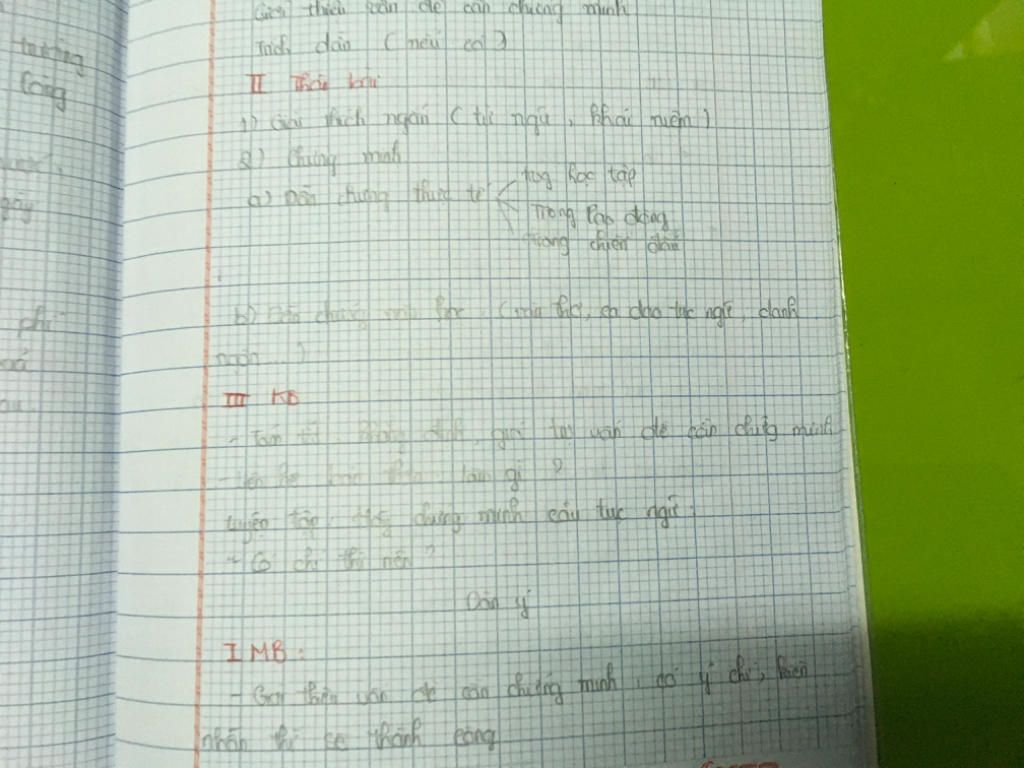 trường
Công
Giới thiệu vấn đề cần chứng minh
Trích dẫn (nếu có)
II Thân bài
1) Giải thích ngắn (từ ngữ, khái niệm)
2) Chứng minh
a) Dẫn chứng thực tế
trog học tập
Trong lao động
trong chiến đấu
b) Dẫn chứng văn học (văn thơ, ca dao tục ngữ, danh
ngôn...)
III KB
- Tóm tắt, khẳng định, giá trị vấn đề cần chứng minh
- liên hệ bản thân làm gì?
Luyện tập: Hãy chứng minh câu tục ngữ:
- Có chí thì nên?
Dàn ý
I MB:
- Giới thiệu vấn đề cần chứng minh: có ý chí, kiên
nhẫn thì sẽ thành công